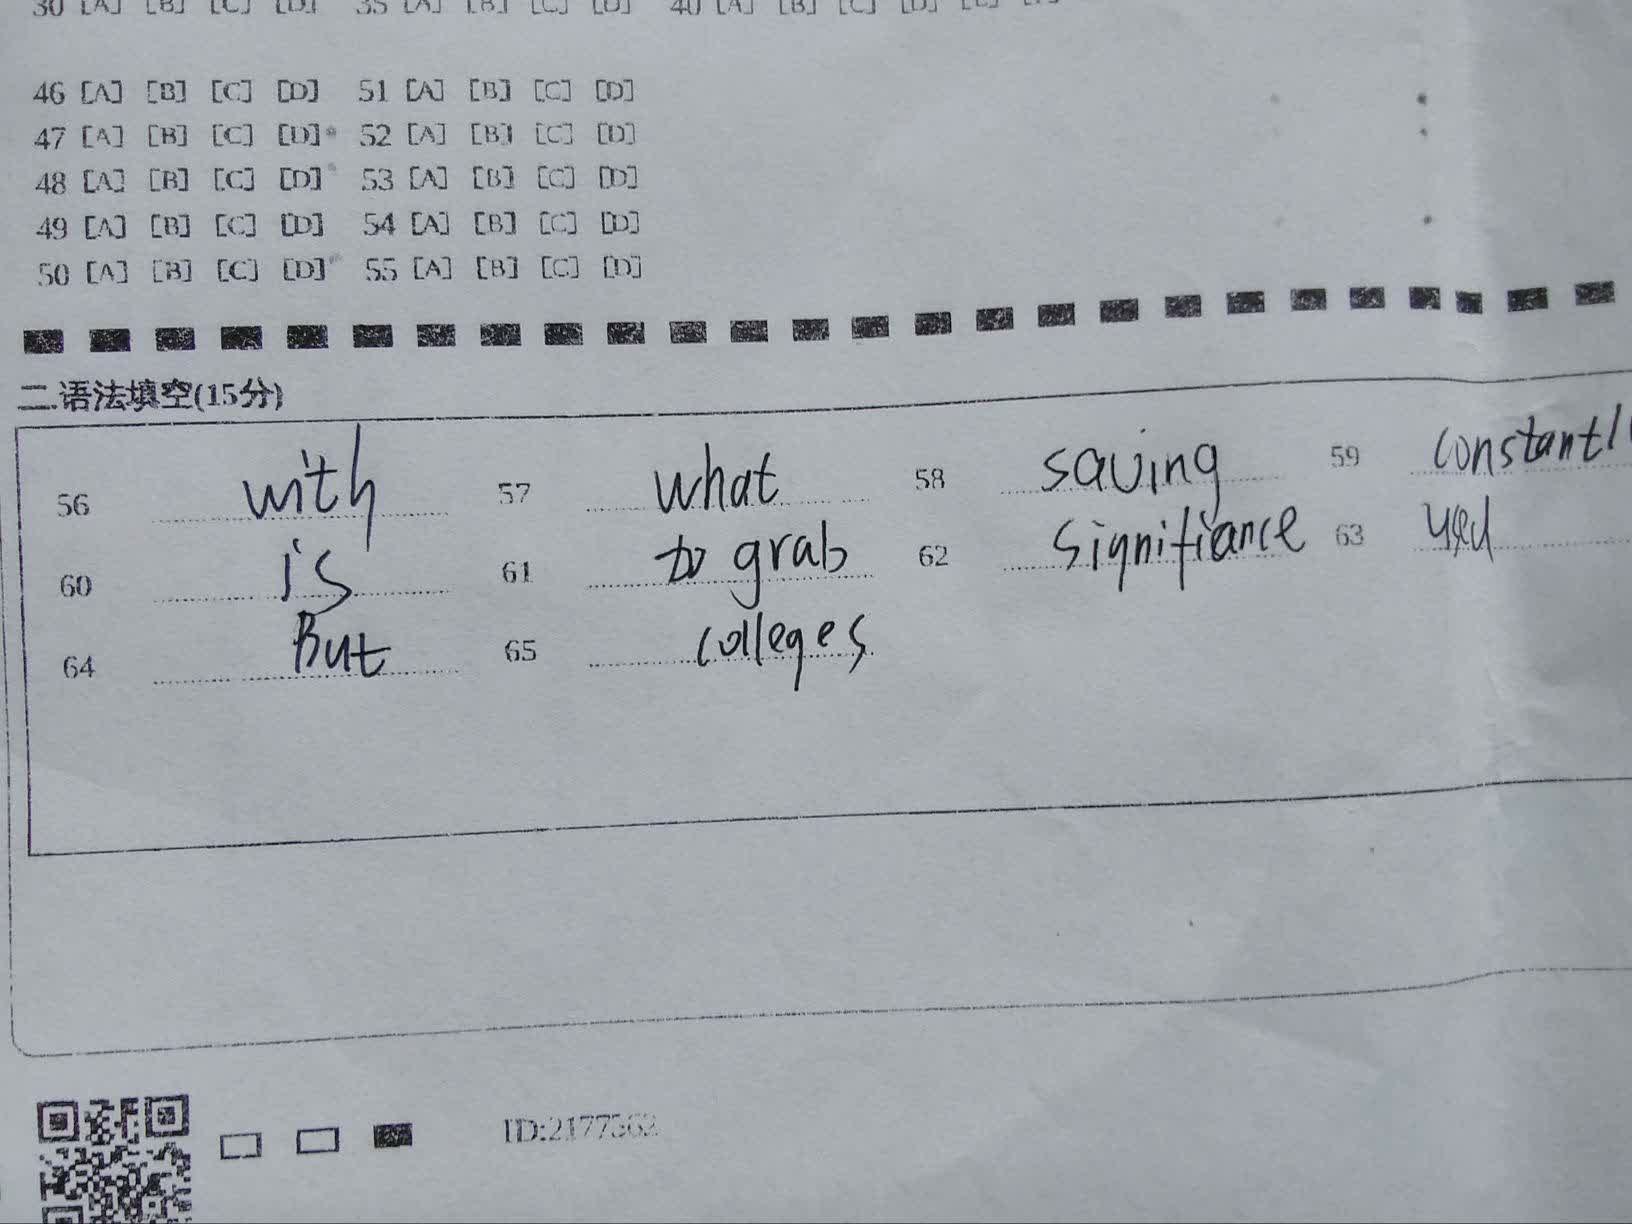 30 [A] [B] [C] [D] 35 [A] [B] [C] [D] 40 [A] [B] [C] [D] [E] [F]
46 [A] [B] [C] [D] 51 [A] [B] [C] [D]
47 [A] [B] [C] [D] 52 [A] [B] [C] [D]
48 [A] [B] [C] [D] 53 [A] [B] [C] [D]
49 [A] [B] [C] [D] 54 [A] [B] [C] [D]
50 [A] [B] [C] [D] 55 [A] [B] [C] [D]
二.语法填空(15分)
56 with 57 what 58 saving 59 constantl
60 is 61 to grab 62 signifiance 63 used
64 But 65 colleges
ID:2177562